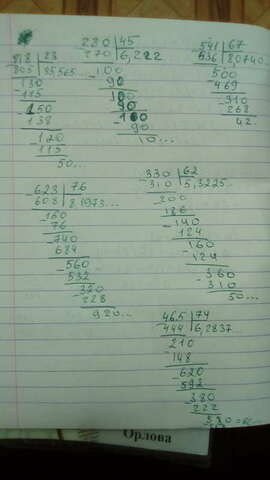 280 | 45
270 | 6,222
-100
90
100
90
-100
90
10...
818 | 23
805 | 35,565...
-130
115
-150
138
-120
115
50...
541 | 67
536 | 8,0740
500
-469
-310
268
42
-623 | 76
608 | 8,1973...
-150
76
-740
684
-560
532
-320
228
920...
-330 | 62
310 | 5,3225...
-200
186
-140
124
-160
124
-360
-310
50...
465 | 74
444 | 6,2837
-210
-148
-620
592
-380
222
Орлова